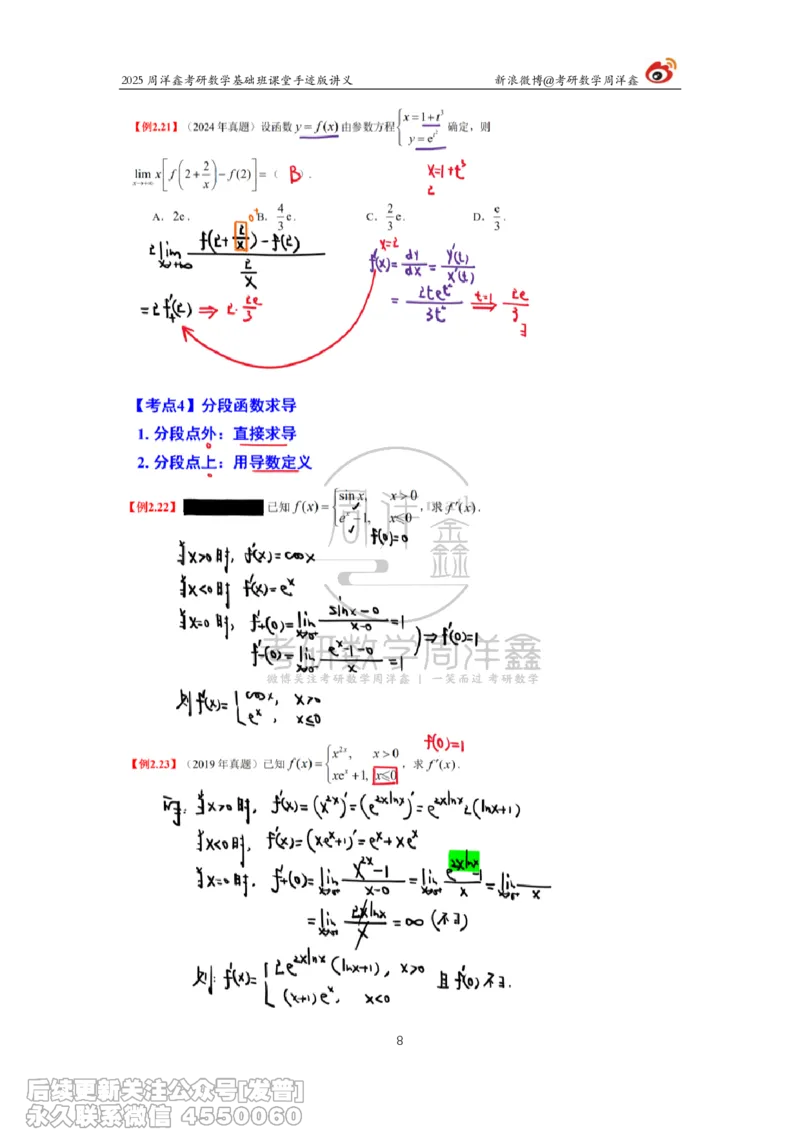 2025 周洋鑫考研数学基础班课堂手迹版讲义 新浪微博@考研数学周洋鑫
【例2.21】（2024 年真题）设函数 y = f(x) 由参数方程 { x = 1 + t³ , y = e^{t²} 确定，则
lim_{x→+∞} x[ f(2 + 2/x) − f(2) ] = （ B ）.
x=1+t³
2
A、2e . B、4/3 e . C、2/3 e . D、e/3 .
2 lim_{x→+∞} [f(2+2/x) − f(2)] / (2/x) 0⁺
x=2
f'(x) = dy/dx = y'(t)/x'(t)
= 2f'₊(2) ⇒ 2·2e/3
= 2te^{t²}/3t² t=1 ⇒ 2e/3
∃
【考点4】分段函数求导
1. 分段点外：直接求导
2. 分段点上：用导数定义
【例2.22】 已知 f(x) = { sin x, x > 0 ; e^x − 1, x ⩽ 0 , 求 f'(x) .
f(0)=0
当x>0时, f'(x)=cosx
当x<0时 f'(x)=e^x
当x=0时, f'₊(0)= lim_{x→0⁺} (sinx−0)/(x−0) =1
f'₋(0)= lim_{x→0⁻} (e^x−1−0)/x =1 ⇒ f'(0)=1
则f'(x)= { cosx, x>0 ; e^x, x≤0
周洋鑫
考研数学周洋鑫
微博关注考研数学周洋鑫 | 一笑而过 考研数学
f(0)=1
【例2.23】（2019 年真题）已知 f(x) = { x^{2x}, x > 0 ; xe^x + 1, x ⩽ 0 , 求 f'(x) .
当x>0时, f'(x)=(x^{2x})'=(e^{2xlnx})'=e^{2xlnx}·2(lnx+1)
当x<0时, f'(x)=(xe^x+1)'=e^x+xe^x
当x=0时, f'₊(0)= lim_{x→0⁺} (x^{2x}−1)/(x−0) = lim_{x→0⁺} (e^{2xlnx}−1)/x = lim_{x→0⁺} /x
= lim_{x→0⁺} 2xlnx/x = ∞ (不∃)
则: f'(x)= { 2e^{2xlnx}(lnx+1), x>0 ; (x+1)e^x, x<0 且f'(0)不∃.
8
后续更新关注公众号[发普]
永久联系微信 4550060